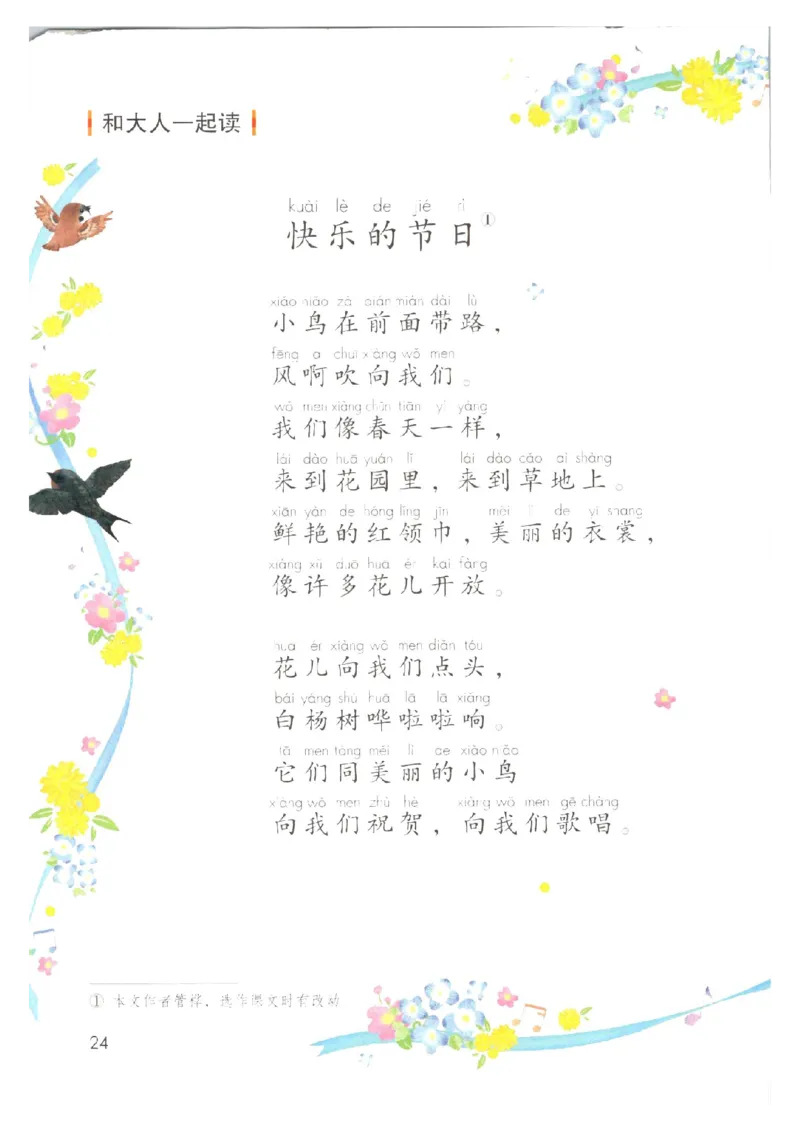 和大人一起读
kuài lè de jié rì
快乐的节日①
xiǎo niǎo zài qián miàn dài lù
小鸟在前面带路，
fēng a chuī xiàng wǒ men
风啊吹向我们。
wǒ men xiàng chūn tiān yí yàng
我们像春天一样，
lái dào huā yuán lǐ lái dào cǎo dì shàng
来到花园里，来到草地上。
xiān yàn de hóng lǐng jīn měi lì de yī shang
鲜艳的红领巾，美丽的衣裳，
xiàng xǔ duō huā ér kāi fàng
像许多花儿开放。
huā ér xiàng wǒ men diǎn tóu
花儿向我们点头，
bái yáng shù huā lā lā xiǎng
白杨树哗啦啦响。
tā men tóng měi lì de xiǎo niǎo
它们同美丽的小鸟
xiàng wǒ men zhù hè xiàng wǒ men gē chàng
向我们祝贺，向我们歌唱。
① 本文作者管桦，选作课文时有改动
24